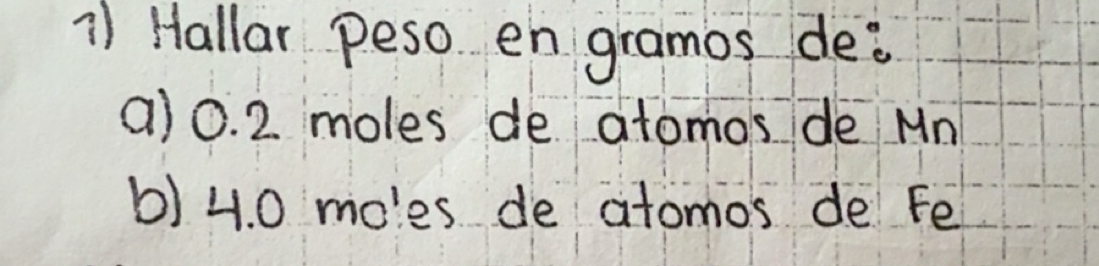 1) Hallar peso en gramos de:
a) 0.2 moles de atomos de Mn
b) 4.0 moles de atomos de Fe